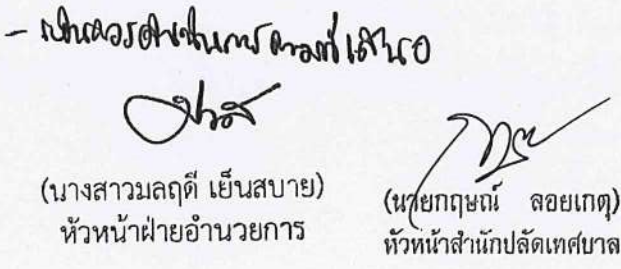 - เห็นควรดำเนินการตามที่เสนอ
(นางสาวมลฤดี เย็นสบาย)
หัวหน้าฝ่ายอำนวยการ
(นายกฤษณ์ ลอยเกตุ)
หัวหน้าสำนักปลัดเทศบาล